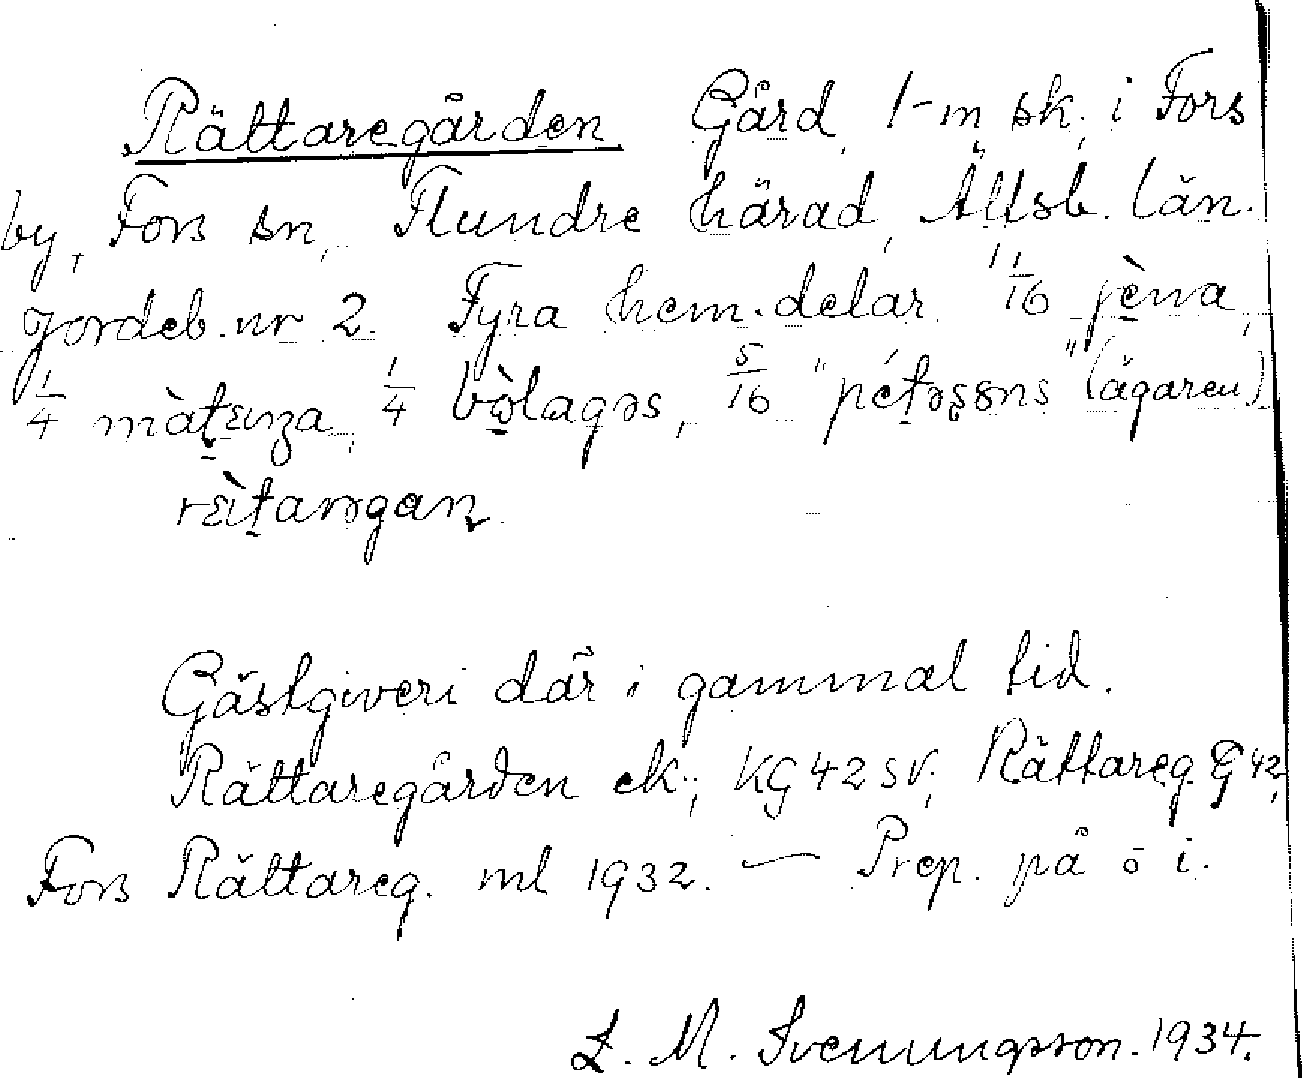 Rättaregården Gård, 1-m sk. i Fors
by, Fors sn, Flundre härad, Älfsb. län.
Jordeb. nr 2. Fyra hem.delar 1/16 jè̱na,
1/4 màt̯ɛnza, 1/4 bò̱lagəs, 5/16 "pét̯əsɷns" (ägaren)
rɛ̀t̯arəgaɳ
Gästgiveri där i gammal tid.
Rättaregården ek; KG 42 SV; Rättareg. G 42,
Fors Rättareg. ml 1932. — Prep. på o i.
L. M. Svenungsson. 1934.